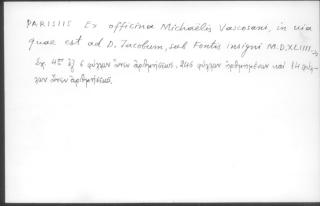 PARISIIS Ex officina Michaëlis Vascosani, in via
quae est ad D. Jacobum, sub Fontis insigni M.D.XLIIII.
Εἰς 4ον ἐξ 6 φύλλων ἄνευ ἀριθμήσεως, 246 φύλλων ἠριθμημένων καὶ 14 φύλ-
λων ἄνευ ἀριθμήσεως.